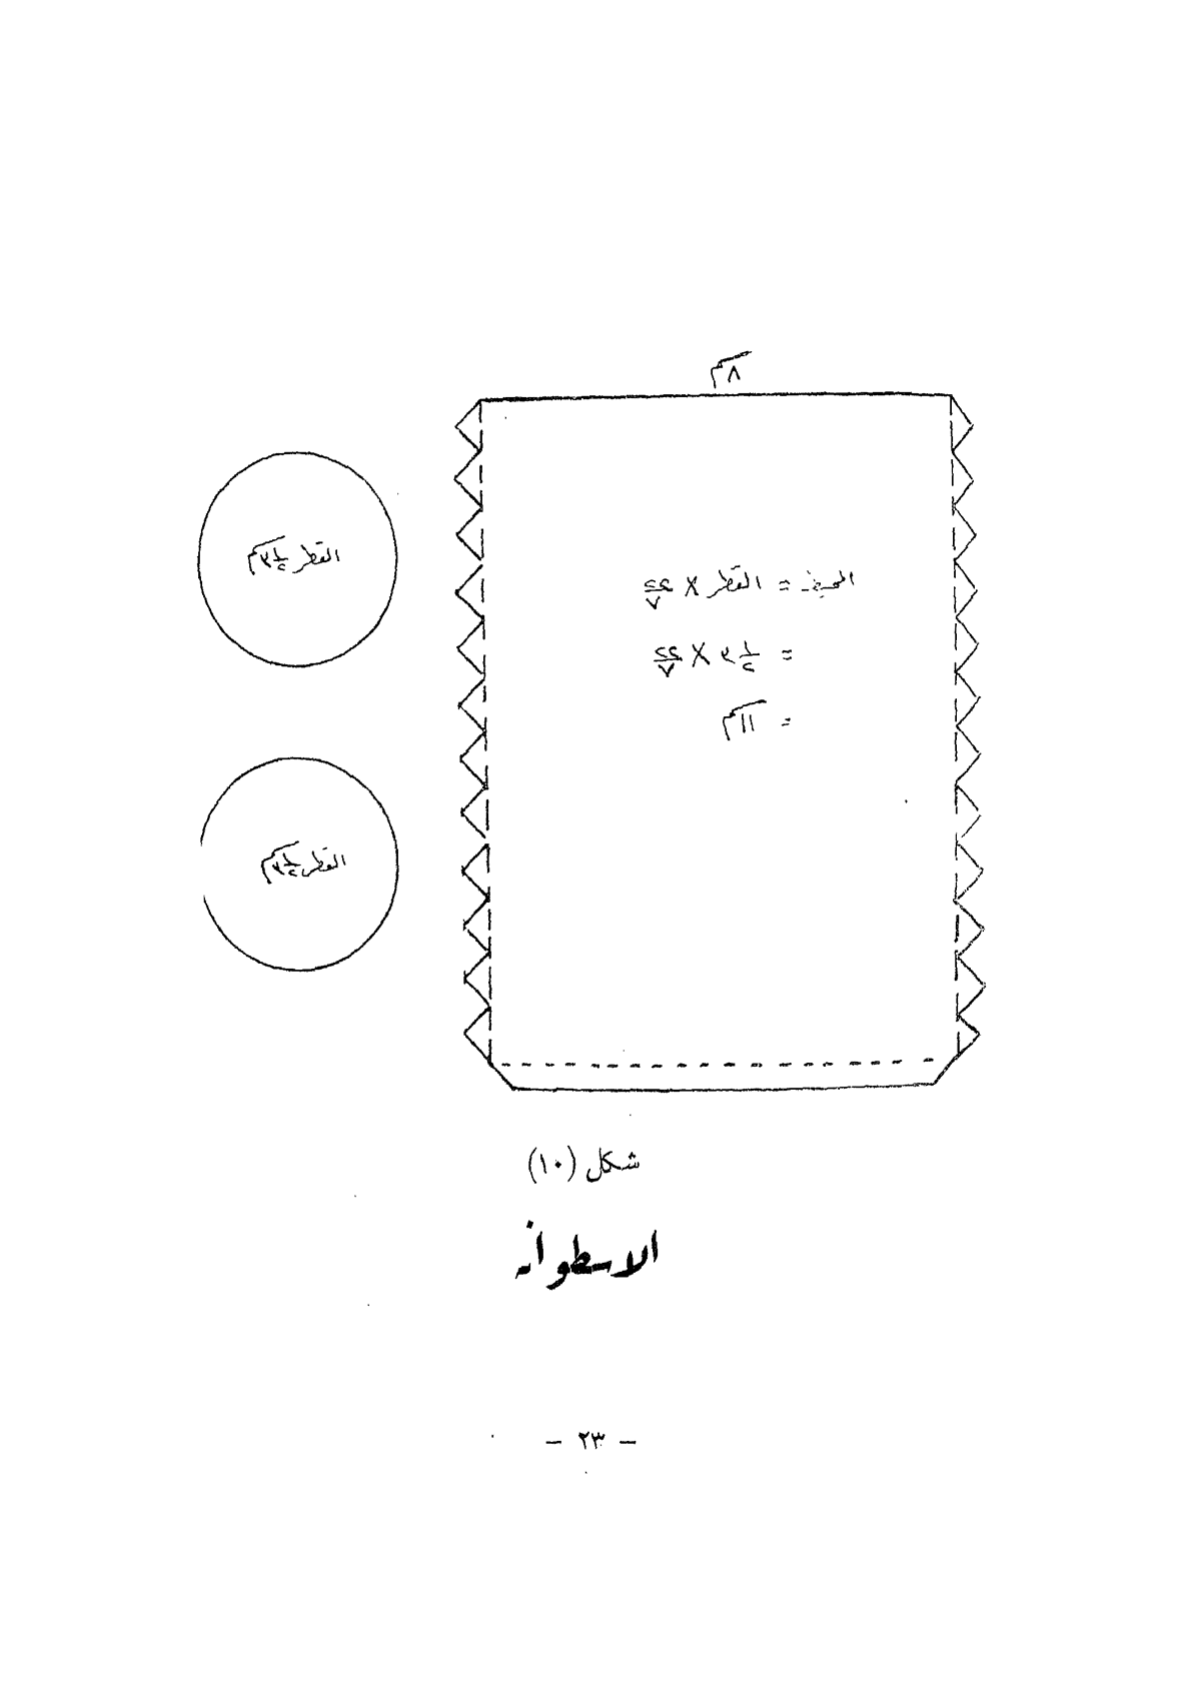 ٨سم
القطر ٣ ١/٢ سم
المحيط = القطر × ٢٢/٧
= ٣ ١/٢ × ٢٢/٧
= ١١سم
القطر ٣ ١/٢ سم
شكل (١٠)
الاسطوانه
- ٢٣ -